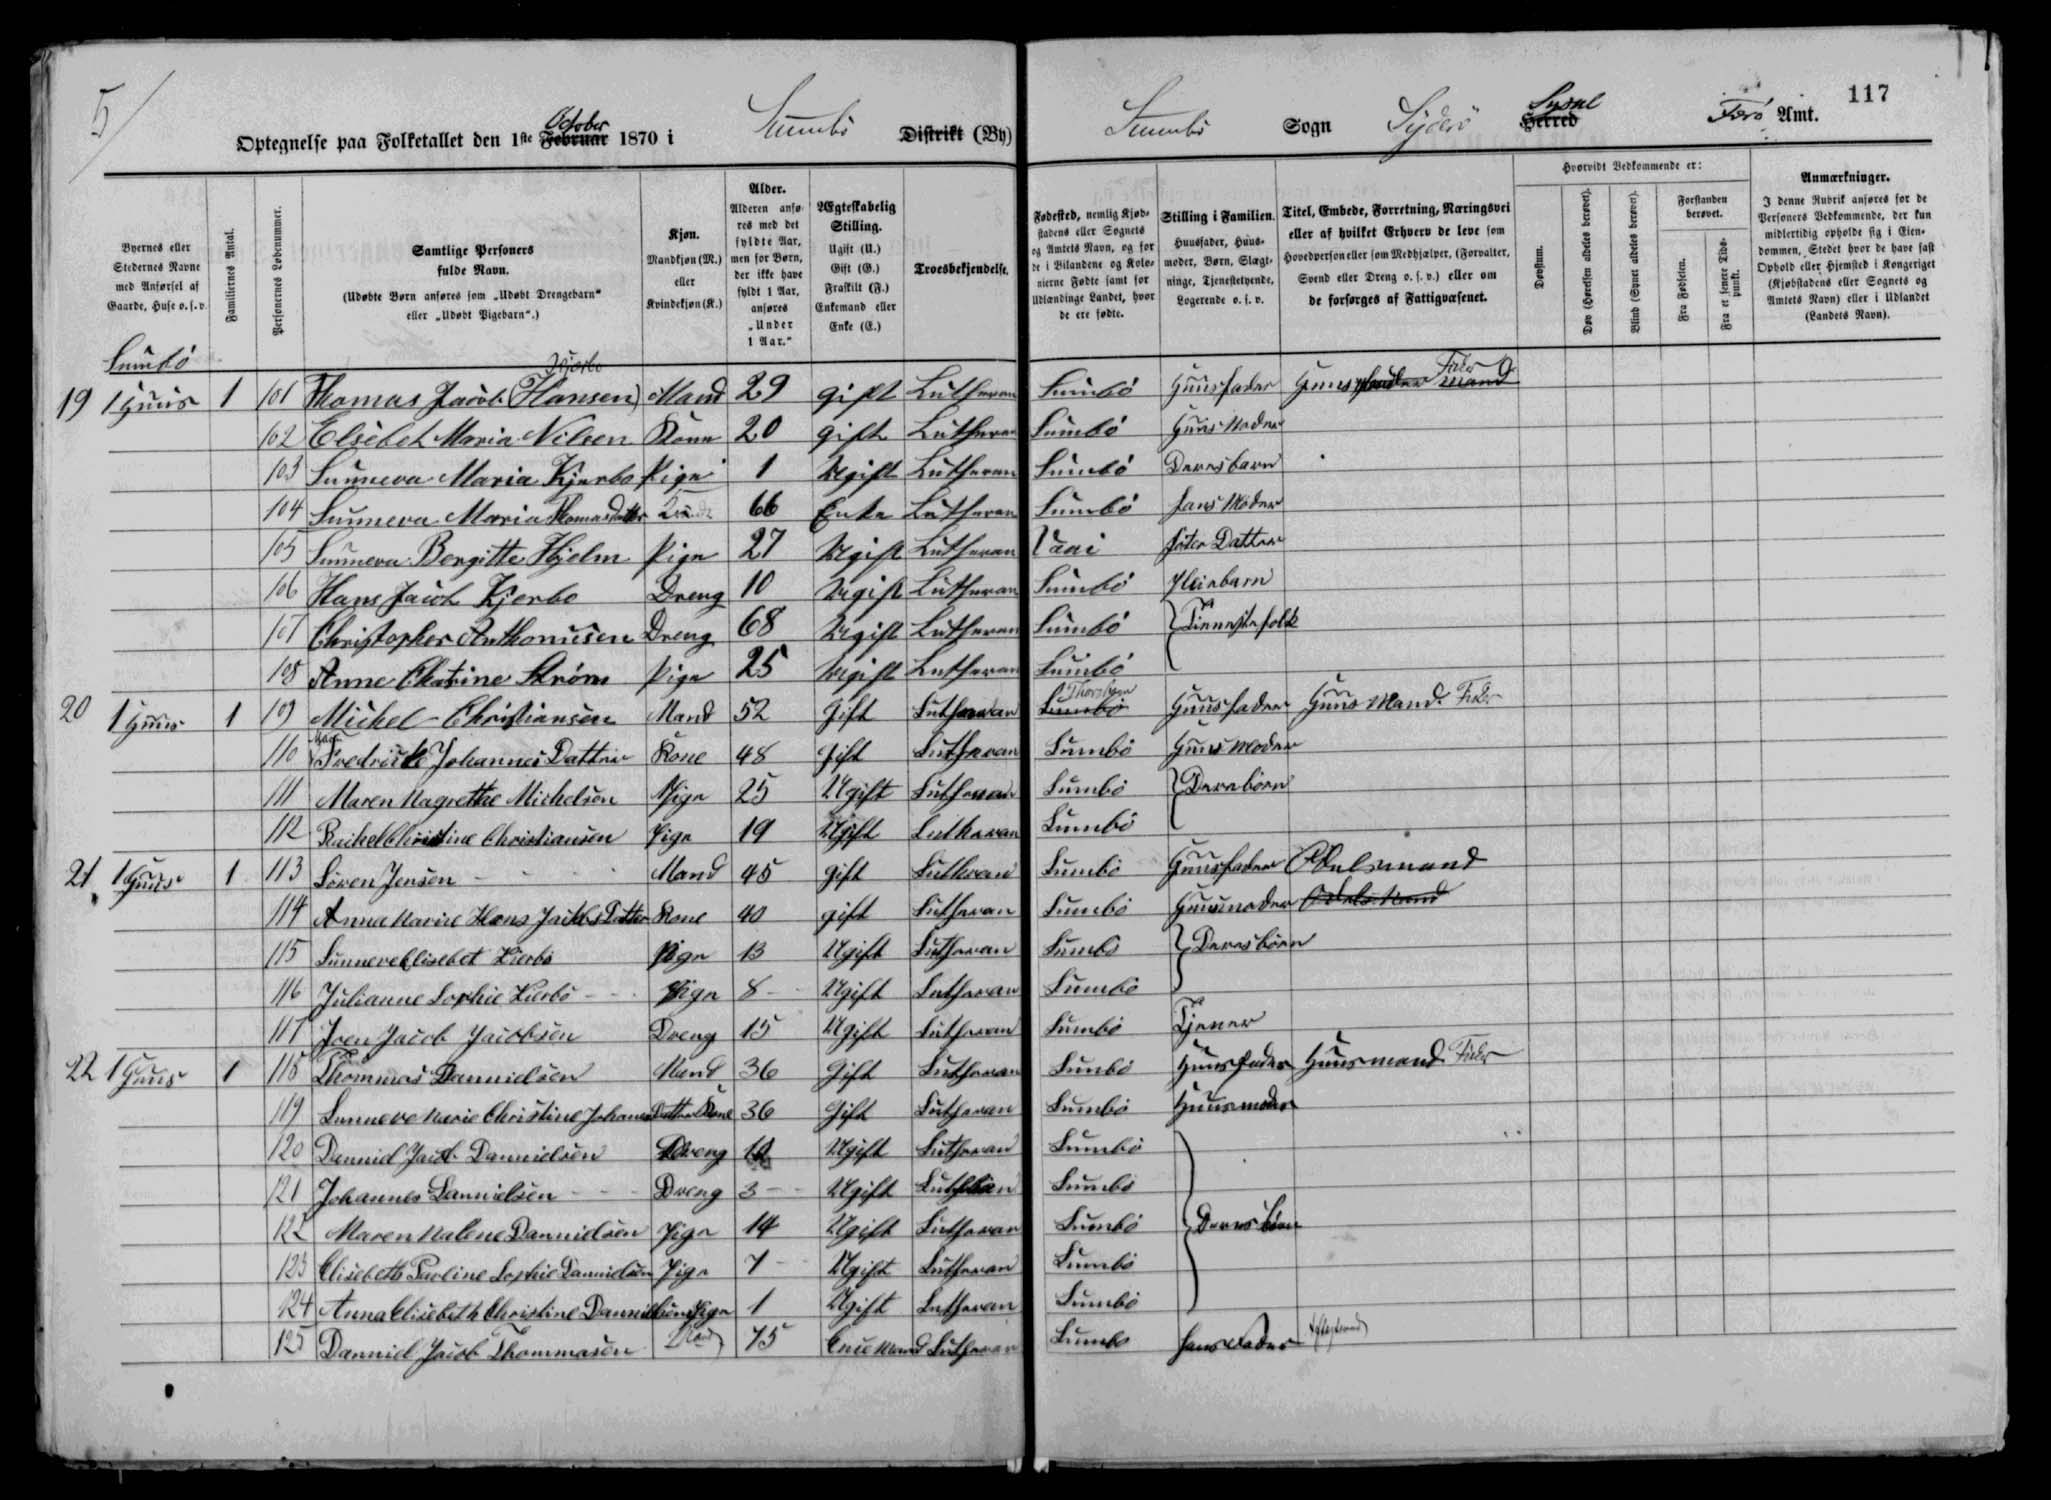 5/
117
Optegnelse paa Folketallet den 1ste Februar October 1870 i Sumbö Distrikt (By)
Sumbö Sogn Syderö Herred Sysul Færö Amt.
Byernes eller Stedernes Navne med Anførsel af Gaarde, Huse o.s.v.
Familiernes Antal.
Personernes Løbenummer.
Samtlige Personers fulde Navn.
(Udøbte Børn anføres som „Udøbt Drengebarn“ eller „Udøbt Pigebarn“.)
Kjøn. Mandkjøn (M.) eller Kvindekjøn (K.)
Alder. Alderen anføres med det fyldte Aar, men for Børn, der ikke have fyldt 1 Aar, anføres „Under 1 Aar.“
Ægteskabelig Stilling. Ugift (U.) Gift (G.) Fraskilt (F.) Enkemand eller Enke (E.)
Troesbekjendelse.
Fødested, nemlig Kjøbstadens eller Sognets og Amtets Navn, og for de i Bilandene og Kolonierne Fødte samt for Udlændinge Landet, hvor de ere fødte.
Stilling i Familien. Huusfader, Huusmoder, Børn, Slægtninge, Tjenestetyende, Logerende o.s.v.
Titel, Embede, Forretning, Næringsvei eller af hvilket Erhverv de leve som Hovedperson eller som Medhjælper, (Forvalter, Svend eller Dreng o.s.v.) eller om de forsørges af Fattigvæsenet.
Hvorvidt Vedkommende er:
Døvstum.
Døv (Hørelsen aldeles berøvet).
Blind (Synet aldeles berøvet).
Forstanden berøvet.
Fra Fødselen.
Fra et senere Tidspunkt.
Anmærkninger.
I denne Rubrik anføres for de Personers Vedkommende, der kun midlertidig opholde sig i Eiendommen, Stedet hvor de have fast Ophold eller Hjemsted i Kongeriget (Kjøbstadens eller Sognets og Amtets Navn) eller i Udlandet (Landets Navn).
Sumbö
19 1 Huus 1 101 Thomas Jacob (Hansen) Kjerbo Mand 29 gift Lutheran Sumbö Huusfader Huus mand Fisker
102 Elsebet Maria Nilsen Kone 20 gift Lutheran Sumbö Huus Moder
103 Sunneva Maria Kjerbo Pige 1 Ugift Lutheran Sumbö Deres barn
104 Sunneva Maria Thomasdatter 66 Enke Lutheran Sumbö hans Moder
105 Sunneva Bergitte Hjelm Pige 27 Ugift Lutheran Vaai Datter
106 Hans Jacob Kjerbo Dreng 10 Ugift Lutheran Sumbö Pleiebarn
107 Christopher Anthonisen Dreng 68 Ugift Lutheran Sumbö Tienestefolk
108 Anne Chatrine Ström Pige 25 Ugift Lutheran Sumbö
20 1 Huus 1 109 Michel - Christiansen Mand 52 Gift Lutheran Sumbö Huusfader Huus Mand Fisker
110 Fredricke Johannes Datter Kone 48 Gift Lutheran Sumbö Huus Moder
111 Maren Magrethe Michelsen Pige 25 Ugift Lutheran Sumbö Deres børn
112 Rachel Christine Christiansen Pige 19 Ugift Lutheran Sumbö
21 1 Huus 1 113 Sören Jensen Mand 45 gift Lutheran Sumbö Huusfader Odelsmand
114 Anna Marie Hans Jacobs Datter Kone 40 gift Lutheran Sumbö Huusmoder Odels Mand
115 Sunneve Elisebet Kierbö Pige 13 Ugift Lutheran Sumbö Deres børn
116 Julianne Sophie Kierbö Pige 8 Ugift Lutheran Sumbö
117 Joen Jacob Jacobsen Dreng 15 Ugift Lutheran Sumbö Tjener
22 1 Huus 1 118 Thommas Dannielsen Mand 36 Gift Lutheran Sumbö Huusfader Huusmand Fisker
119 Sunneve Marie Christine Johannes Datter Kone 36 Gift Lutheran Sumbö Huusmoder
120 Danniel Jacob Dannielsen Dreng Ugift Lutheran Sumbö
121 Johannes Dannielsen Dreng 3 Ugift Lutheran Sumbö
122 Maren Malene Dannielsen Pige 14 Ugift Lutheran Sumbö Deres børn
123 Elisebeth Paoline Sophie Dannielsen Pige 7 Ugift Lutheran Sumbö
124 Anna Elisebeth Christine Dannielsen Pige 1 Ugift Lutheran Sumbö
125 Danniel Jacob Thommasen Mand 75 Enke Mand Lutheran Sumbo hans Fader